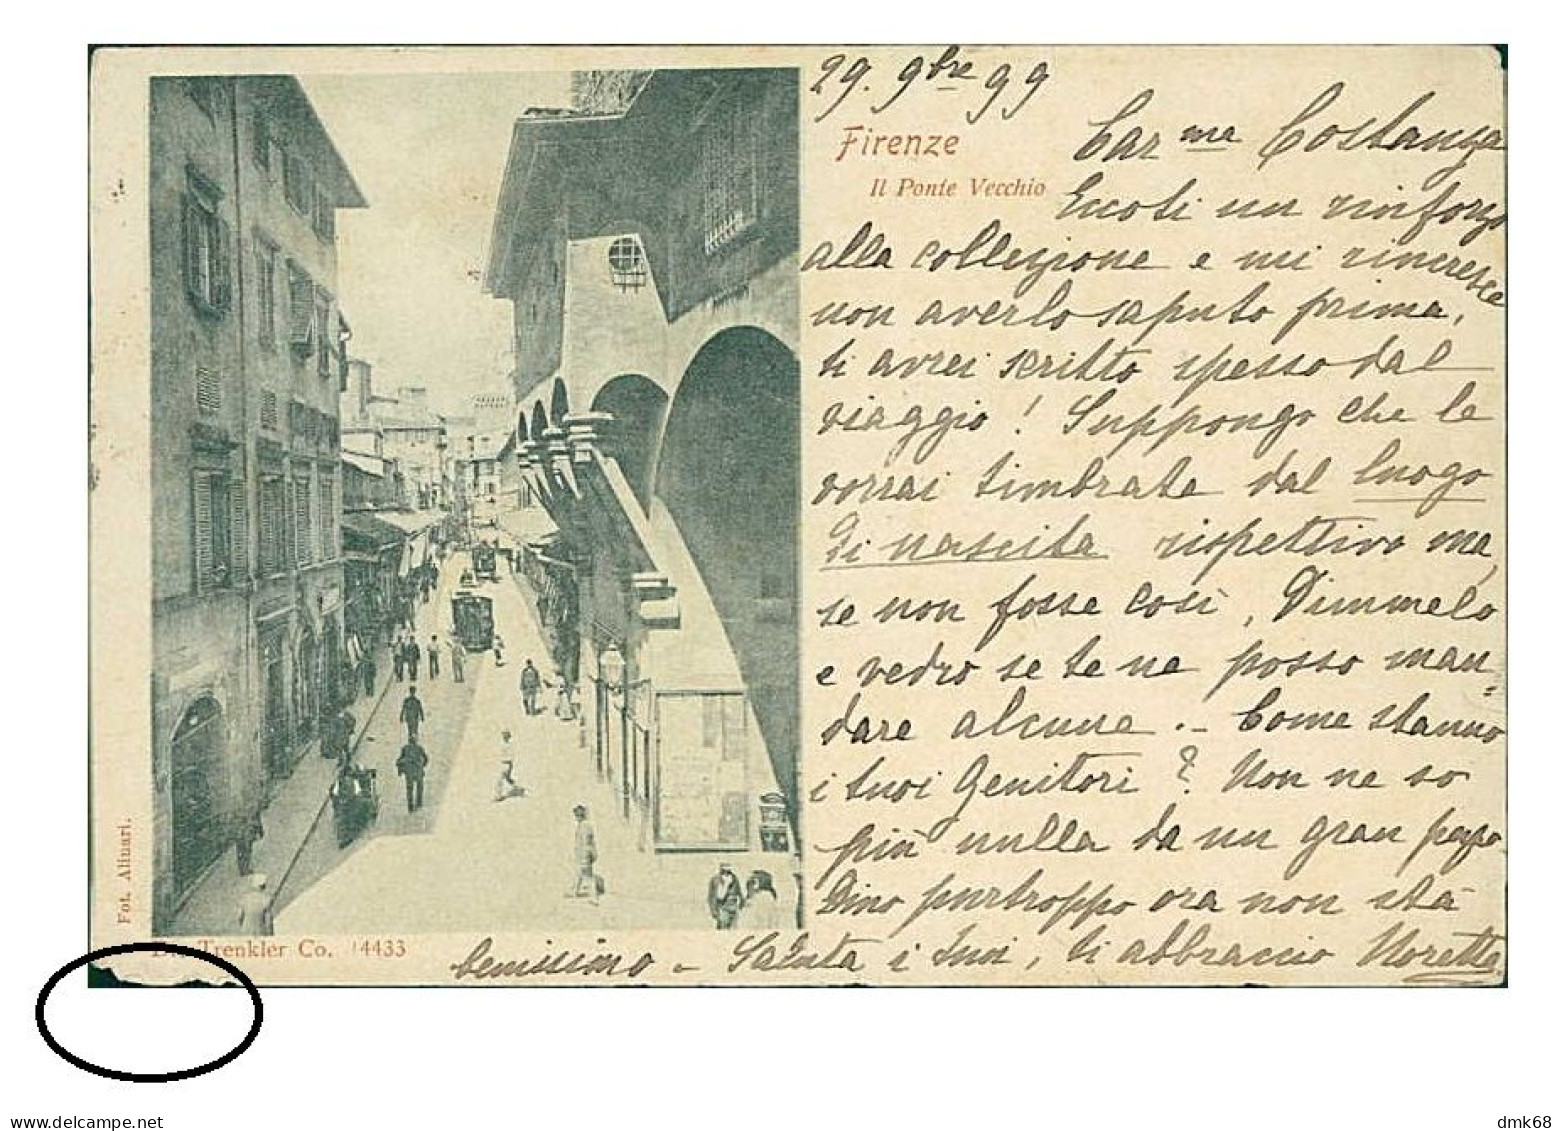 29. 9bre 99
Firenze
Il Ponte Vecchio
Carma Costanza
Eccoti un rinforzo
alla collezione e mi rincresce
non averlo saputo prima,
ti avrei scritto spesso dal
viaggio! Suppongo che le
vorrai timbrate dal luogo
di nascita rispettivo ma,
se non fosse così, Dimmelo
e vedrò se te ne posso man=
dare alcune.- Come stanno
i tuoi Genitori? Non ne so
più nulla da un gran pezzo
Dino purtroppo ora non stà
benissimo - Saluta i tuoi, ti abbraccio Noretta
Fot. Alinari.
Trenkler Co. 14433
www.delcampe.net
dmk68